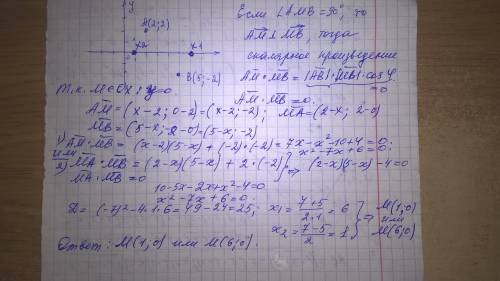 y
A(2;2)
x2
x1
B(5;-2)
Если ∠AMB=90°, то
AM⊥MB, тогда
скалярное произведение
AM·MB=|AB|·|MB|·cos φ
=0
AM·MB=0.
Т.к. M∈Ox: y=0
AM=(x-2; 0-2)=(x-2;-2); MA=(2-x; 2-0)
MB=(5-x;-2-0)=(5-x;-2)
1) AM·MB=(x-2)(5-x)+(-2)·(-2)=7x-x²-10+4=0;
x²-7x+6=0.
или
2) MA·MB=(2-x)(5-x)+2·(-2) } ⇔ (2-x)(5-x)-4=0
MA·MB=0
10-5x-2x+x²-4=0
x²-7x+6=0.
D=(-7)²-4·1·6=49-24=25; x₁=(7+5)/(2·1)=6 } ⇒ M(1;0)
или
x₂=(7-5)/2=1 M(6;0)
Ответ: M(1;0) или M(6;0).